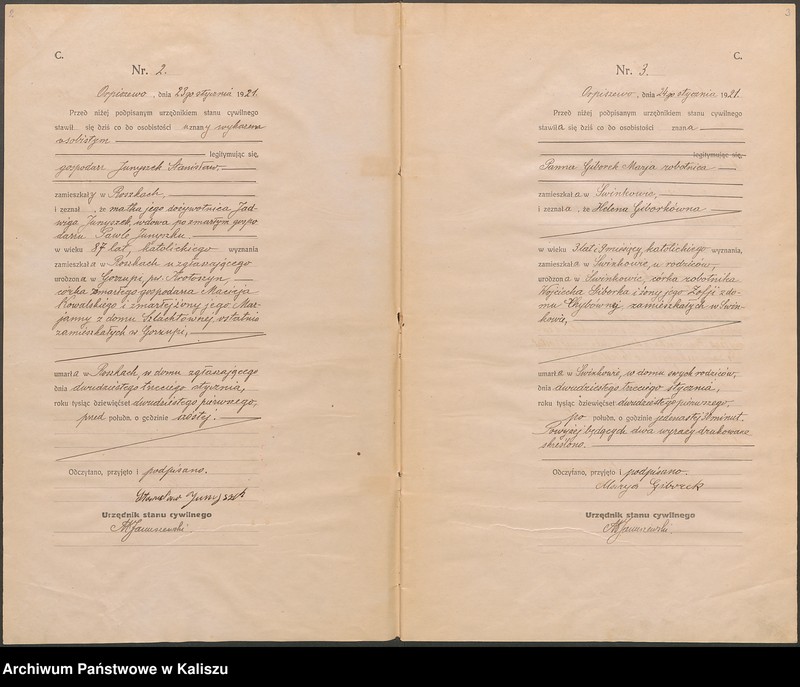 2
C.
Nr. 2.
Orpiszewo, dnia 23go stycznia 1921.
Przed niżej podpisanym urzędnikiem stanu cywilnego
stawił się dziś co do osobistości uznany wykazem
osobistym
legitymując się,
gospodarz Junyszek Stanisław,
zamieszkały w Roszkach,
i zeznał, że matka jego dożywotnica Jad-
wiga Junyszek, wdowa po zmarłym gospo-
darzu Pawle Junyszku
w wieku 87 lat, katolickiego wyznania
zamieszkała w Roszkach u zgłaszającego
urodzona w Gorzupi, pw. Krotoszyn,
córka zmarłego gospodarza Macieja
Kowalskiego i zmarłej żony jego Mar-
janny z domu Szlachtównej, ostatnio
zamieszkałych w Gorzupi,
umarła w Roszkach, w domu zgłaszającego
dnia dwudziestego trzeciego stycznia,
roku tysiąc dziewięćset dwudziestego pierwszego,
przed połudn. o godzinie szóstej.
Odczytano, przyjęto i podpisano.
Stanisław Junyszek
Urzędnik stanu cywilnego
3
C.
Nr. 3.
Orpiszewo, dnia 24go stycznia 1921.
Przed niżej podpisanym urzędnikiem stanu cywilnego
stawiła się dziś co do osobistości znana
legitymując się,
Panna Giborek Marya robotnica
zamieszkała w Świnkowie,
i zeznała, że Helena Giborkówna
w wieku 3 lat 9 miesięcy, katolickiego wyznania,
zamieszkała w Świnkowie, u rodziców,
urodzona w Świnkowie, córka robotnika
Wojciecha Giborka i żony jego Zofji z do-
mu Chybównej, zamieszkałych w Świn-
kowie,
umarła w Świnkowie, w domu swych rodziców,
dnia dwudziestego trzeciego stycznia,
roku tysiąc dziewięćset dwudziestego pierwszego,
po połudn. o godzinie jedenastej 30 minut.
Powyżej będących dwa wyrazy drukowane
skreślono.
Odczytano, przyjęto i podpisano.
Marya Giborek
Urzędnik stanu cywilnego
Archiwum Państwowe w Kaliszu